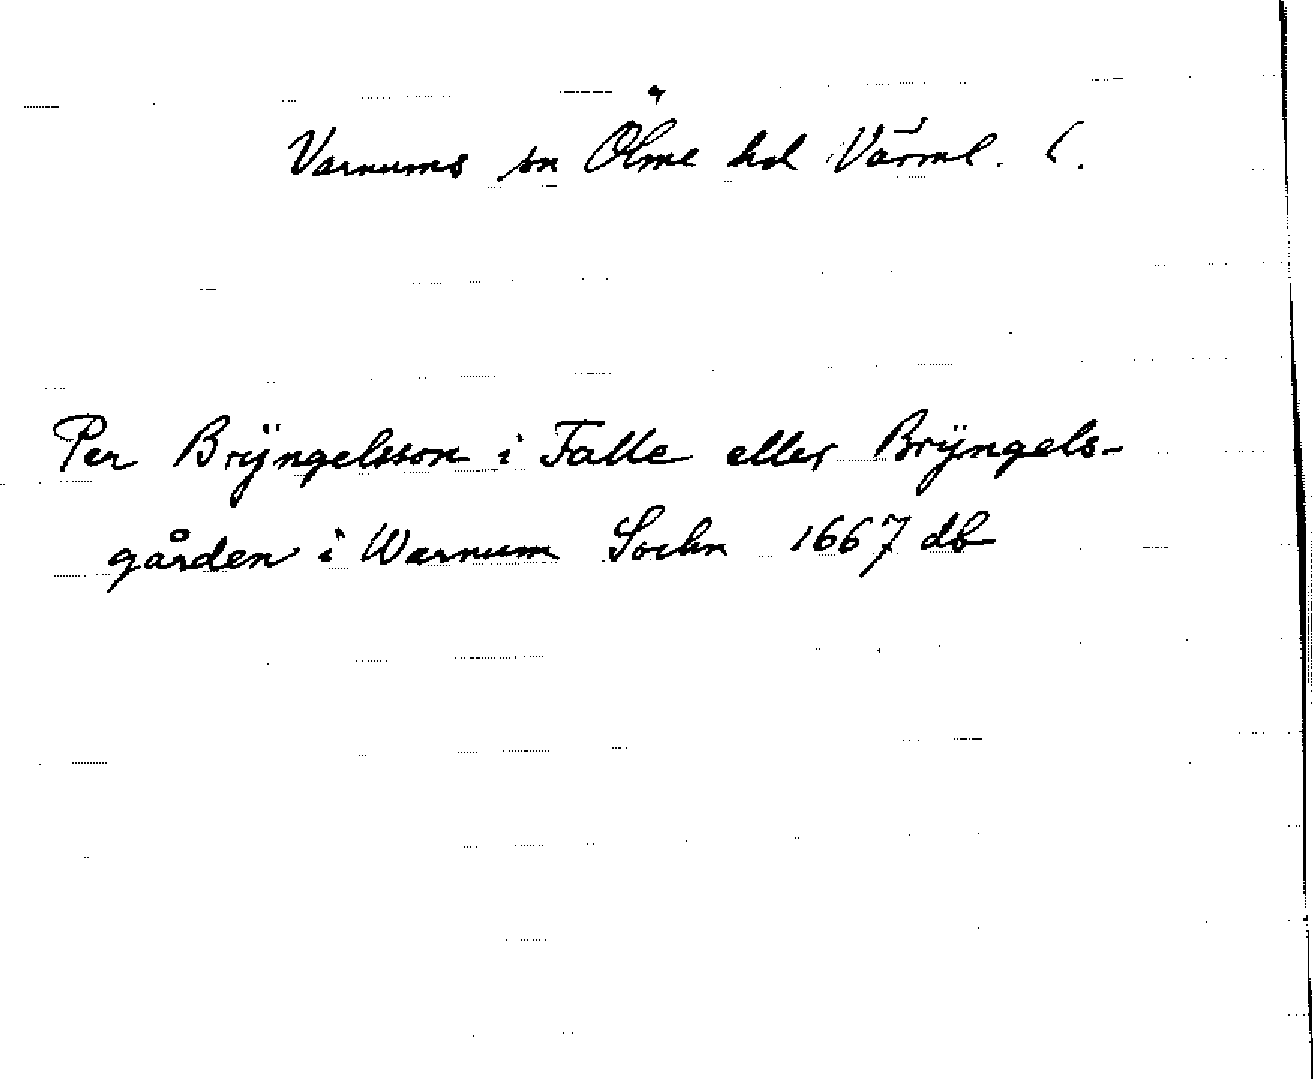 Varnums sn Ölme hd Värml. l.
Per Brÿngelsson i Falle eller Brÿngels-
gården i Warnum Sochn 1667 db